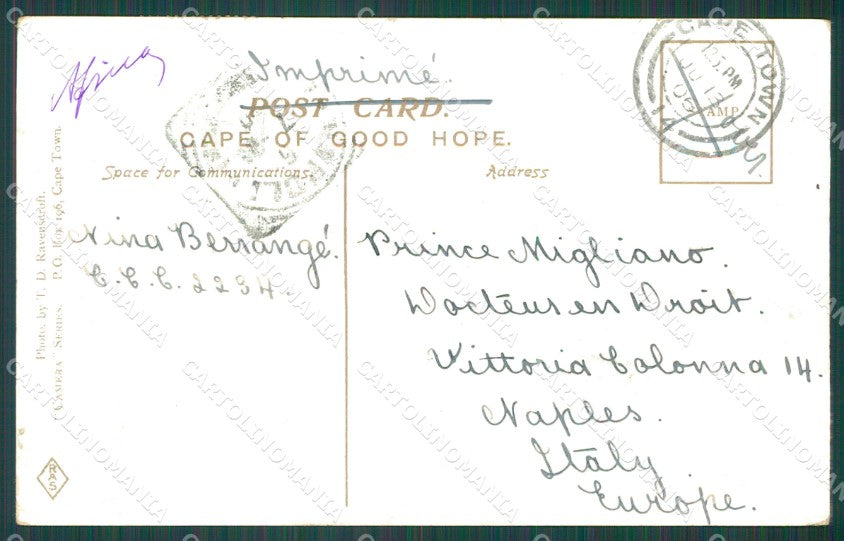 Africa
Imprimé
POST CARD.
CAPE OF GOOD HOPE.
Space for Communications.
Address
CAPE TOWN
JU 13
STAMP
Nina Berrangé.
C.C.C. 2234.
Prince Migliano.
Docteur en Droit.
Vittoria Colonna 14.
Naples.
Italy
Europe.
Photo. by T. D. Ravenscroft.
"CAMERA" SERIES. P.O. Box 196, Cape Town.
R&S
CARTOLINOMANIA